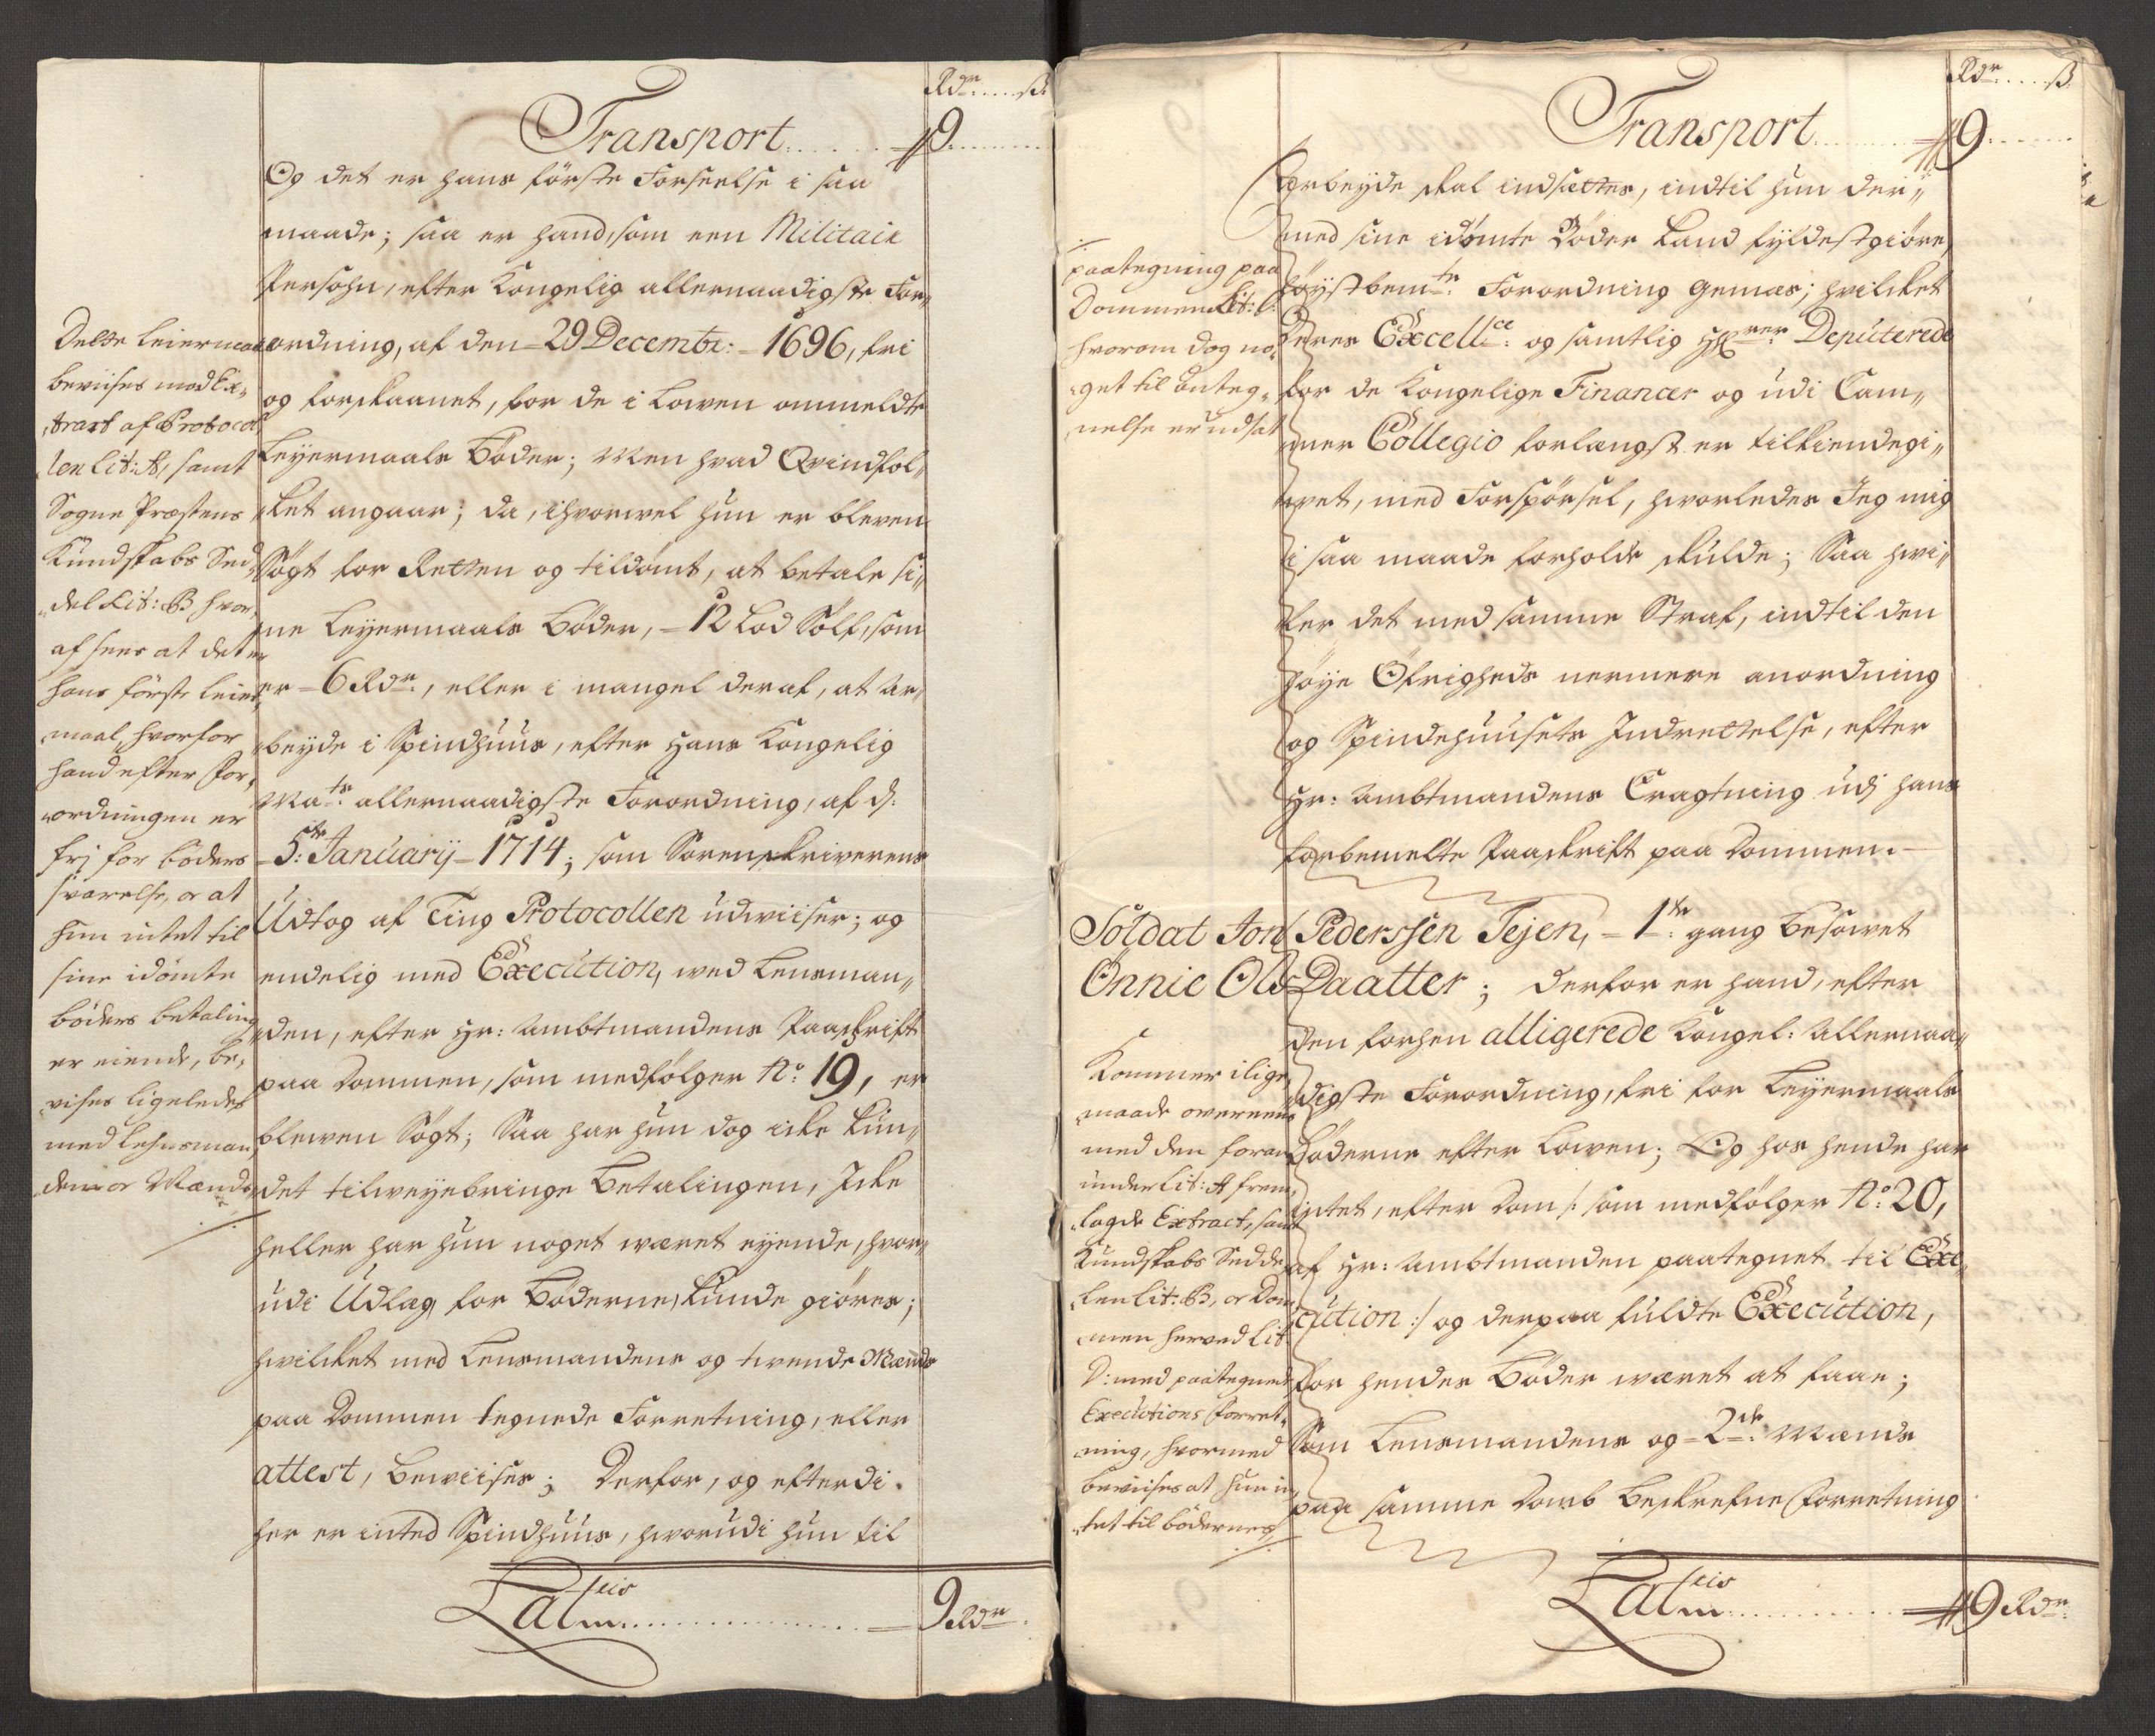 Rdr. ß.
Transport. 9.
Og det er hans förste Forseelse i saa
maade; saa er hand, som een Militair
Persohn, efter Kongelig allernaadigste For„
ordning, af den 29 Decembr: 1696, fri
og forskaanet, for de i Lowen ommeldte
Leyermaals Böder; Men hvad Qvindfol„
ket angaar; da, ihvorvel hun er bleven
Sögt for Retten og tildömt, at betale si„
ne Leyermaals Böder, 12 Lod Sölf, som
er 6 Rdr., eller i mangel deraf, at Ar„
beyde i Spindhuus, efter Hans Kongelig
Mats. allernaadigste Forordning, af d.
5te January 1714; som Sorenskriverens
Udtog af Ting Protocollen udwiiser; og
endelig med Execution, wed Lensman„
den, efter Hr: Ambtmandens Paaskrift
paa Dommen, som medfölger No: 19, er
blewen Sögt; Saa har hun dog icke kun„
det tilweyebringe Betalingen, Icke
heller har hun noget wæret eyende, hvor„
udi Udlag for Böderne, kunde giöres;
hvilcket med Lensmandens og twende Mænds
paa Dommen tegnede Forretning, eller
attest, bewiises; Derfor, og efterdi
her er inted Spindhuus, hvorudi hun til
Lateris 9 Rdr.
Dette leiermaal
beviises med Ex„
tract af Protocol„
len Lit: A, samt
Sogne Præstens
Kundskabs Sed„
del Lit: B hvor„
af sees at det er
hans förste leier„
maal, hvorfor
hand efter For„
ordningen er
frj for böders
svarelse, og at
hun intet til
sine idömte
böders betaling
er eiende, be„
vises ligeledes
med Lehnsman„
dens og Mænds
Rdr. ß.
Transport 9.
Arbeyde skal indsættes, indtil hun der„
med sine idömte Böder kand fyldestgiöre,
höystbemte. Forordning gemæs; hvilcket
Deres Excellce. og samtlig Hrrer Deputerede
for de Kongelige Financer og udi Cam„
mer Collegio forlængst er tilkiendegi„
wet, med Forspörsel, hvorledes Jeg mig
i saa maade forholde skulde; Saa hvi„
ler det med samme Straf, indtil den
höye Öfrigheds nermere anordning
og Spindehuusets Indrettelse, efter
Hr: Ambtmandens Eragtning udj hans
forbemelte Paaskrift paa Dommen.
paategning paa
Dommen Lit: C.
hvorom dog no„
get til Anteg„
nelse er udsat
Soldat Jon Pederssen Tejen, 1te gang besowet
Önnie Ols Daatter; Derfor er hand, efter
den forhen alligerede Kongel: Allernaa„
digste Forordning, fri for Leyermaals
Böderne efter Lowen; Og hos hende har
intet, efter Dom /: som medfölger No: 20,
af Hr: Ambtmanden paategnet til Exe„
cution :/ og derpaa fuldte Execution,
for hendes Böder wæret at faae;
Som Lensmandens og 2de Mænds
paa samme Domb beskrefne Forretning
Kommer i lige„
maade overeens
med den foran
under Lit: A frem„
lagde Extract, samt
Kundskabs Sedde„
len Lit: B, og Dom„
men herved Lit
D: med paategnede
Executions Forret„
ning, hvormed
beviises at hun in„
tet til böderne
Lateris 9 Rdr.